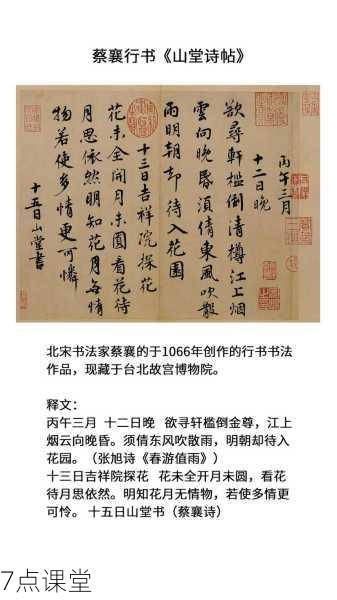 蔡襄行书《山堂诗帖》
丙午三月
十二日晚
欲尋軒檻倒清樽江上烟
雲向晚昏須倩東風吹散
雨明朝却待入花園
十三日吉祥院探花
花未全開月未圓看花待
月思依然明知花月無情
物若使多情更可憐
十五日山堂書
北宋书法家蔡襄的于1066年创作的行书书法
作品，现藏于台北故宫博物院。
释文：
丙午三月 十二日晚 欲寻轩槛倒金尊，江上
烟云向晚昏。须倩东风吹散雨，明朝却待入
花园。（张旭诗《春游值雨》）
十三日吉祥院探花 花未全开月未圆，看花
待月思依然。明知花月无情物，若使多情更
可怜。 十五日山堂书（蔡襄诗）
7点课堂